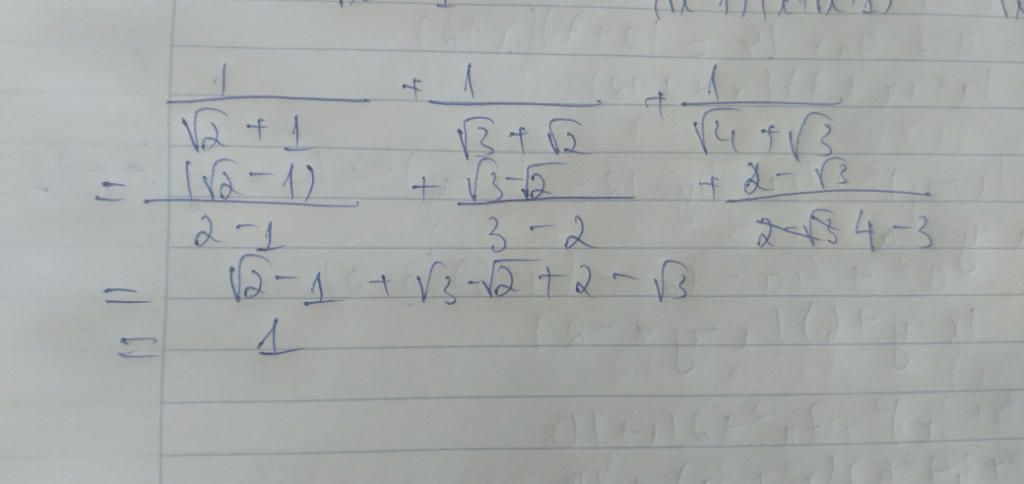 1/(√2 + 1) + 1/(√3 + √2) + 1/(√4 + √3)
= (√2 - 1)/(2 - 1) + (√3 - √2)/(3 - 2) + (2 - √3)/(4 - 3)
= √2 - 1 + √3 - √2 + 2 - √3
= 1